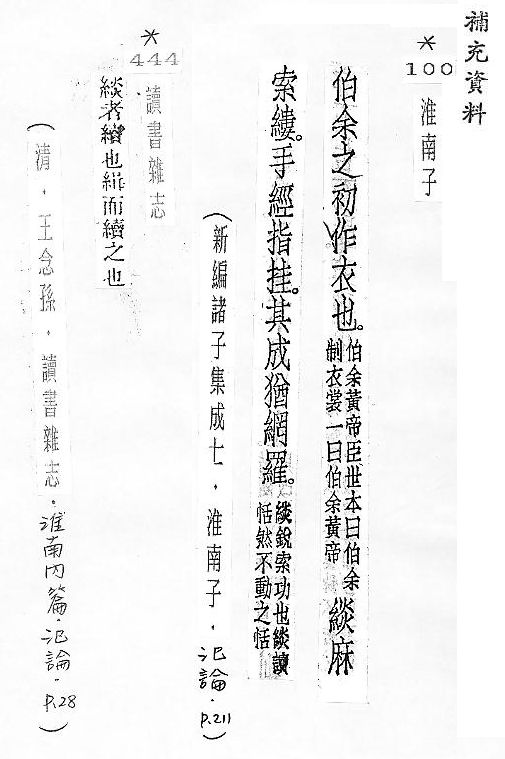 補充資料
*
100 淮南子
伯余之初作衣也。伯余黃帝臣世本曰伯余
制衣裳一曰伯余黃帝 緂麻
索縷。手經指挂。其成猶網羅。緂銳索功也緂讀
恬然不動之恬
(新編諸子集成七,淮南子,氾論,P.211)
*
444 讀書雜志
緂者續也緝而續之也
(清,王念孫,讀書雜志,淮南內篇,氾論,P.28)